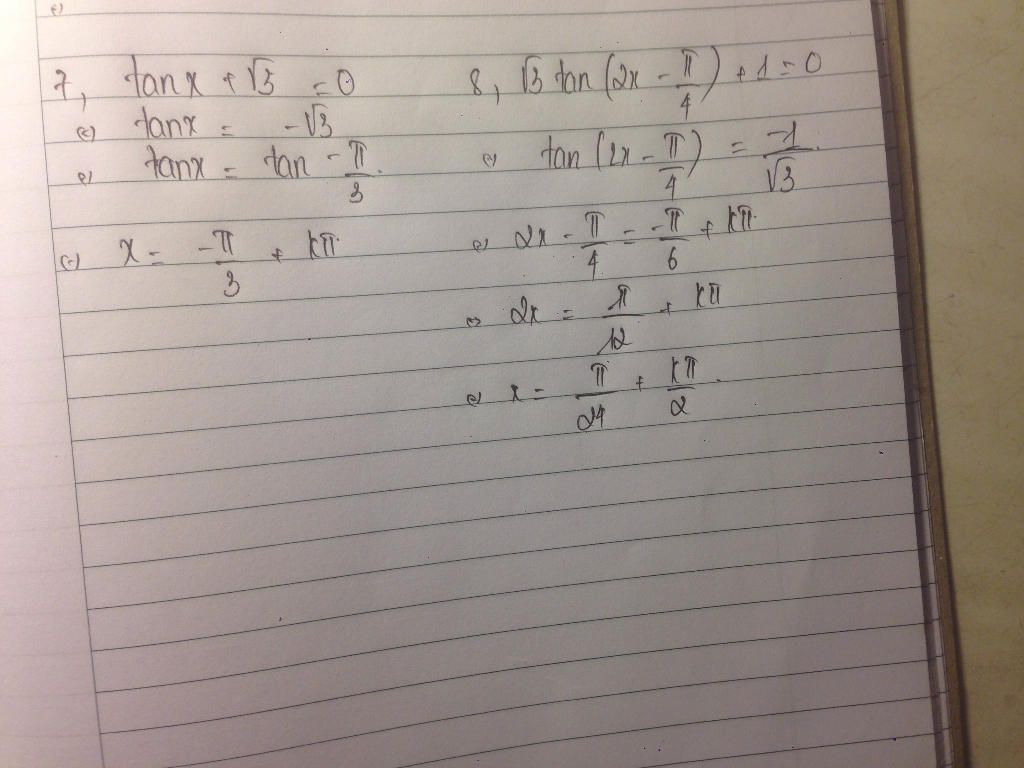 7, tanx + √3 = 0
⇔ tanx = -√3
⇔ tanx = tan -π/3.
⇔ x = -π/3 + kπ
8, √3 tan (2x - π/4) + 1 = 0
⇔ tan (2x - π/4) = -1/√3.
⇔ 2x - π/4 = -π/6 + kπ
⇔ 2x = π/12 + kπ
⇔ x = π/24 + kπ/2.